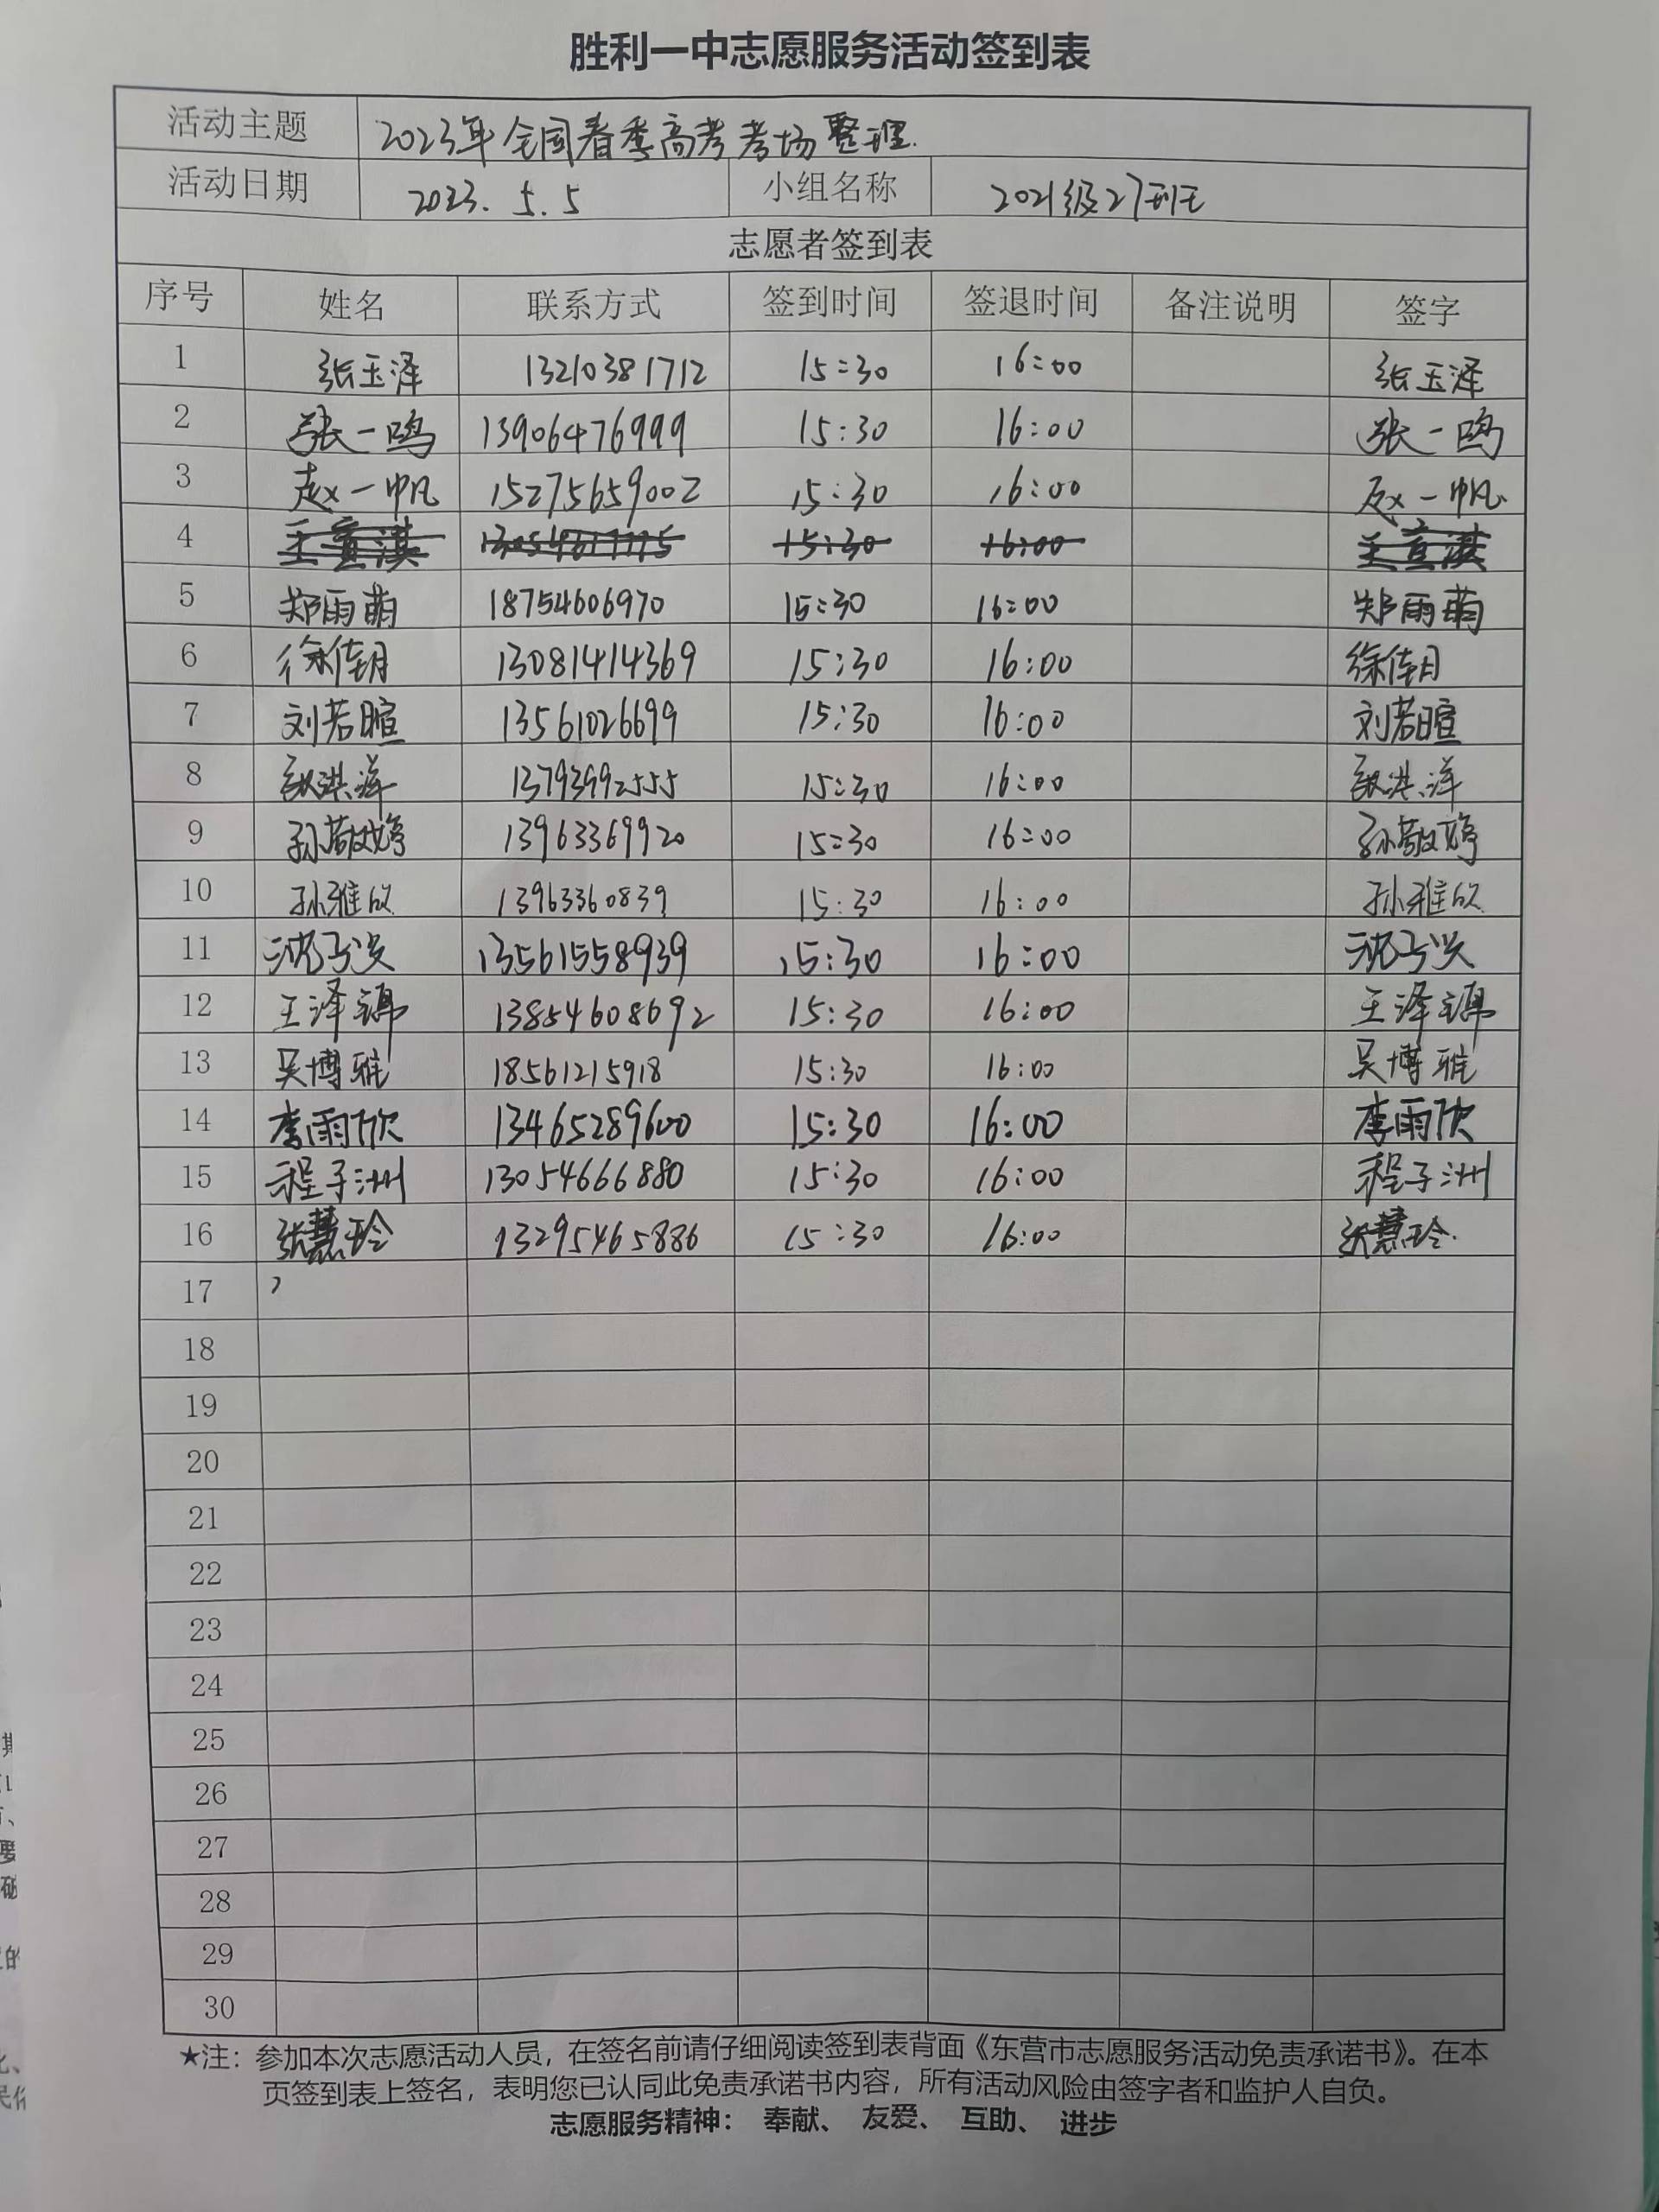 胜利一中志愿服务活动签到表
活动主题 2023年全国春季高考考场整理.
活动日期 2023. 5. 5 小组名称 2021级27班
志愿者签到表
序号 姓名 联系方式 签到时间 签退时间 备注说明 签字
1 张玉泽 13210381712 15:30 16:00 张玉泽
2 张一鸣 13906476999 15:30 16:00 张一鸣
3 赵一帆 15275659002 15:30 16:00 赵一帆
4 15:30 16:00
5 郑雨萌 18754606970 15:30 16:00 郑雨萌
6 徐倩月 13081414369 15:30 16:00 徐倩月
7 刘若暄 13561026699 15:30 16:00 刘若暄
8 洪洋 13793992555 15:30 16:00 洪洋
9 孙敬婷 13963369920 15:30 16:00 孙敬婷
10 孙雅欣 13963360839 15:30 16:00 孙雅欣
11 沈子 13561558939 15:30 16:00 沈子
12 王泽锦 13854608692 15:30 16:00 王泽锦
13 吴博雅 18561215918 15:30 16:00 吴博雅
14 李雨欣 13465289600 15:30 16:00 李雨欣
15 程子洲 13054666880 15:30 16:00 程子洲
16 张慧玲 13295465886 15:30 16:00 张慧玲.
17
18
19
20
21
22
23
24
25
26
27
28
29
30
★注：参加本次志愿活动人员，在签名前请仔细阅读签到表背面《东营市志愿服务活动免责承诺书》。在本
页签到表上签名，表明您已认同此免责承诺书内容，所有活动风险由签字者和监护人自负。
志愿服务精神： 奉献、 友爱、 互助、 进步